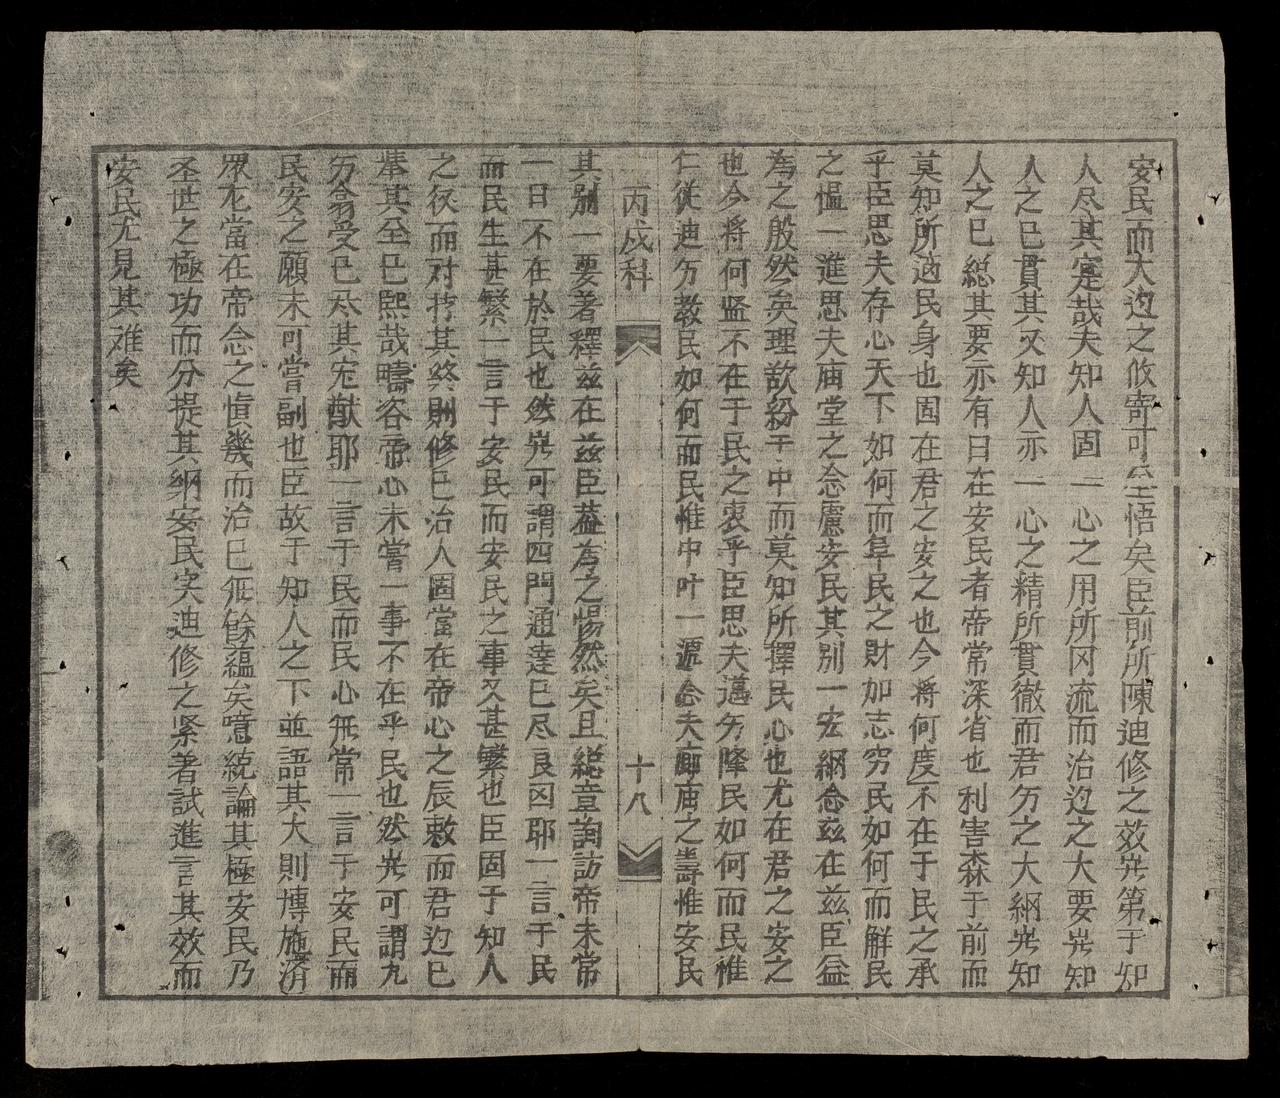 安民而大道之攸寄可坐悟矣臣前所陳迪修之效豈第于知
人尽其寔哉夫知人固一心之用所冈流而治道之大要豈知
人之已貫其又知人亦一心之精所貫徹而君道之大綱豈知
人之已総其要亦有曰在安民者帝常深省也利害森于前而
莫知所適民身也固在君之安之也今将何度不在于民之承
乎臣思夫存心天下如何而阜民之財加志穷民如何而解民
之慍一進思夫庙堂之念慮安民其别一宏綱念兹在兹臣益
為之殷然矣理欲紛于中而莫知所擇民心也尤在君之安之
也今将何监不在于民之衷乎臣思夫邁方降民如何而民惟
仁従迪方教民如何而民惟中叶一源念夫廊庙之壽惟安民
丙戌科 十八
其别一要著釋兹在兹臣益為之惕然矣且総章詢訪帝未常
一日不在於民也然豈可謂四門通達已尽良図耶一言于民
而民生甚繁一言于安民而安民之事又甚繁也臣固于知人
之後而对持其終則修已治人固當在帝心之辰敕而君道已
挙其全已熙哉疇咨帝心未嘗一事不在乎民也然豈可謂九
方翕受已尽其宏猷耶一言于民而民心無常一言于安民而
民安之願未可嘗副也臣故于知人之下並語其大則博施済
眾尤當在帝念之慎幾而治已無餘蘊矣噫統論其極安民乃
圣世之極功而分提其綱安民寔迪修之紧著試進言其效而
安民尤見其难矣